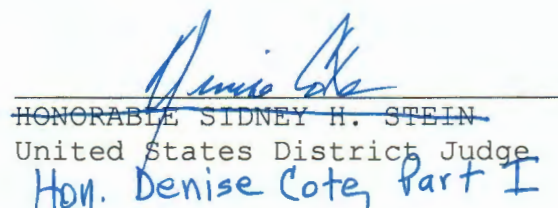 Denise Cote
HONORABLE SIDNEY H. STEIN
United States District Judge
Hon. Denise Cote, Part I